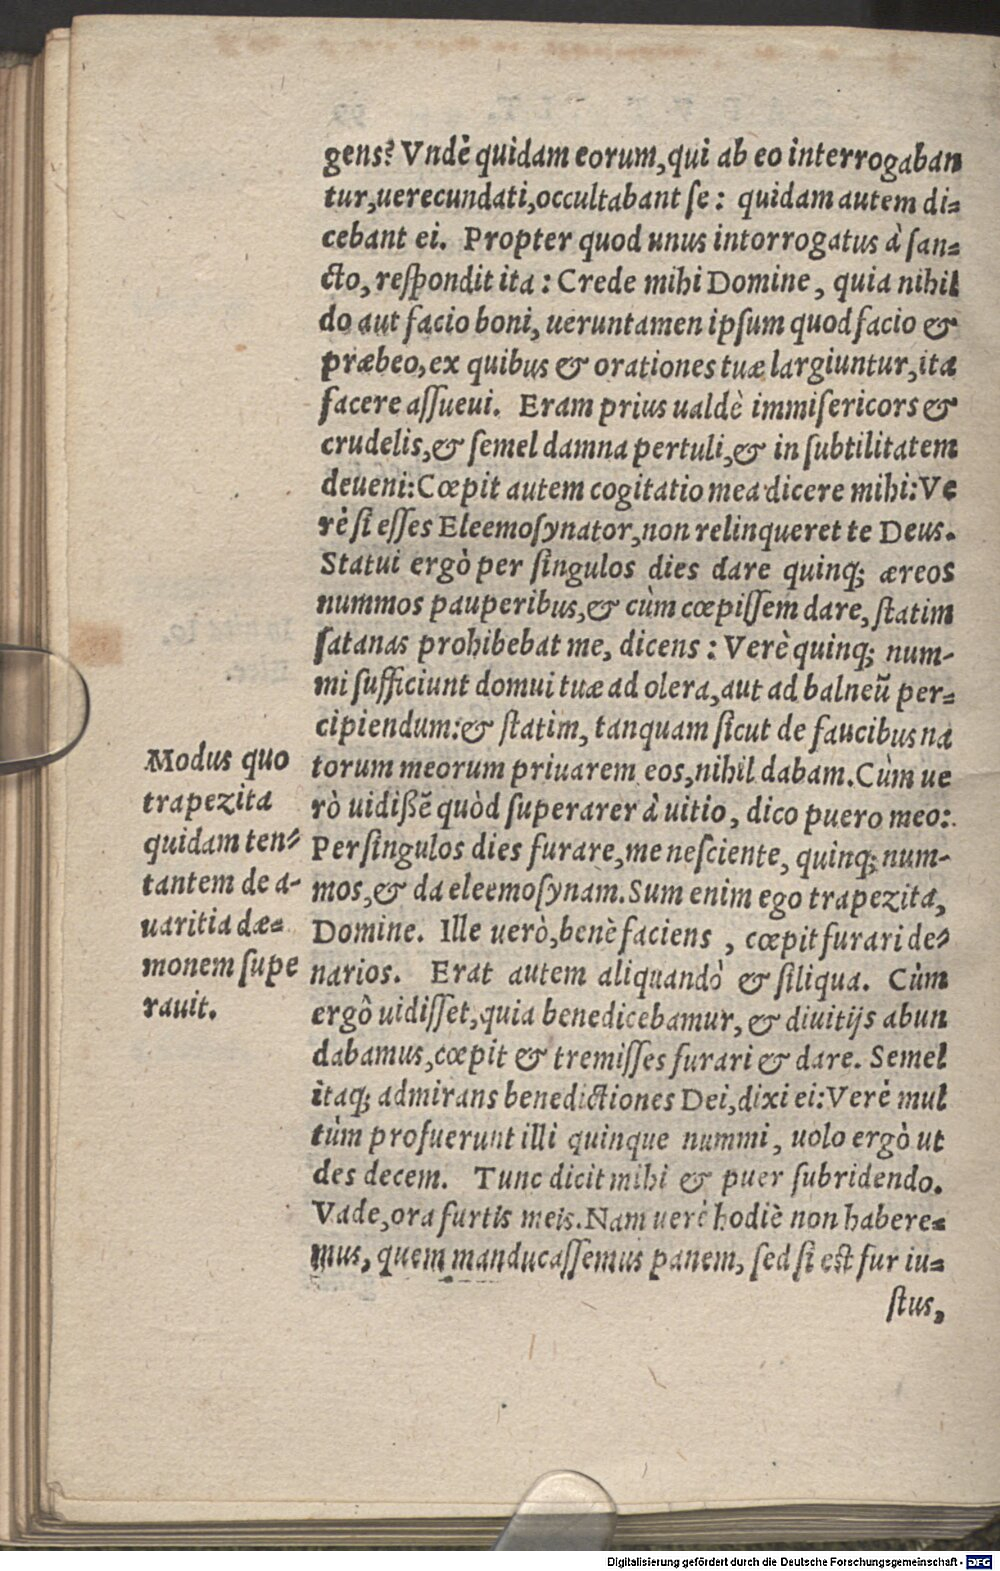 gens? Vndè quidam eorum, qui ab eo interrogaban
tur, uerecundati, occultabant se: quidam autem di=
cebant ei. Propter quod unus intorrogatus à san=
cto, respondit ita: Crede mihi Domine, quia nihil
do aut facio boni, ueruntamen ipsum quod facio &
præbeo, ex quibus & orationes tuæ largiuntur, ita
facere assueui. Eram prius ualdè immisericors &
crudelis, & semel damna pertuli, & in subtilitatem
deueni: Cœpit autem cogitatio mea dicere mihi: Ve
rè si esses Eleemosynator, non relinqueret te Deus.
Statui ergò per singulos dies dare quinq; æreos
nummos pauperibus, & cùm cœpissem dare, statim
satanas prohibebat me, dicens: Verè quinq; num-
mi sufficiunt domui tuæ ad olera, aut ad balneũ per=
cipiendum: & statim, tanquam sicut de faucibus na
torum meorum priuarem eos, nihil dabam. Cùm ue
rò uidißẽ quòd superarer à uitio, dico puero meo:
Per singulos dies furare, me nesciente, quinq; num-
mos, & da eleemosynam. Sum enim ego trapezita,
Domine. Ille uerò, benè faciens, cœpit furari de=
narios. Erat autem aliquandò & siliqua. Cùm
ergò uidisset, quia benedicebamur, & diuitijs abun
dabamus, cœpit & tremisses furari & dare. Semel
itaq; admirans benedictiones Dei, dixi ei: Verè mul
tùm profuerunt illi quinque nummi, uolo ergò ut
des decem. Tunc dicit mihi & puer subridendo.
Vade, ora furtis meis. Nam uerè hodiè non habere=
mus, quem manducassemus panem, sed si est fur iu=
stus,
Modus quo
trapezita
quidam ten=
tantem de a-
uaritia dæ=
monem supe
rauit.
Digitalisierung gefördert durch die Deutsche Forschungsgemeinschaft - DFG